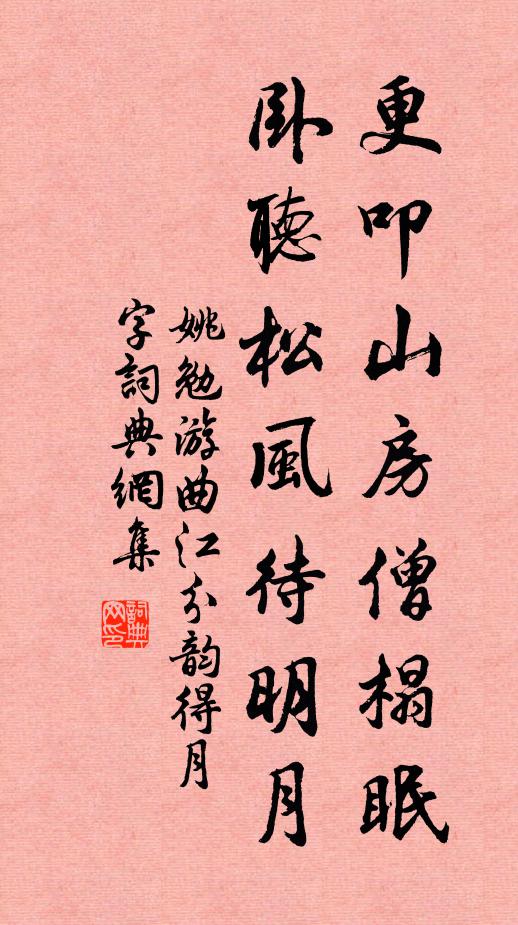 更叩山房僧榻眠
卧聽松風待明月
姚勉游曲江分韵得月
字詞典網集
詞典網印